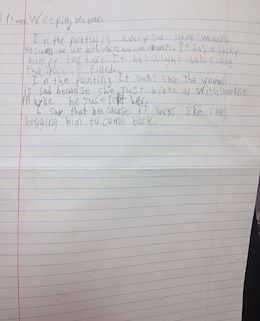 Weeping Woman
In the painting is a very sad crying woman
He use warm and
bumpy texture It has a light value
the space is filled.
In the painting It looks like the woman
is sad because she Just broke up With someone
Maybe he Just left her.
I say that because it looks like she's
begging him to come back.